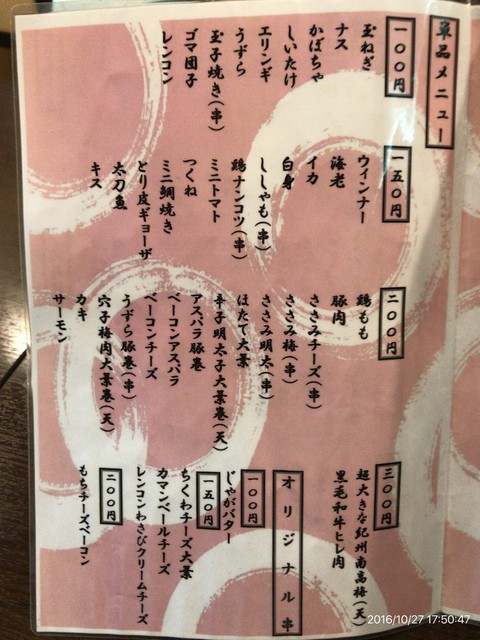 単品メニュー
一〇〇円
玉ねぎ
ナス
かぼちゃ
しいたけ
エリンギ
うずら
玉子焼き(串)
ゴマ団子
レンコン
一五〇円
ウィンナー
海老
イカ
白身
ししゃも(串)
鶏ナンコツ(串)
ミニトマト
つくね
ミニ鯛焼き
とり皮ギョーザ
太刀魚
キス
二〇〇円
鶏もも
豚肉
ささみチーズ(串)
ささみ梅(串)
ささみ明太(串)
ほたて大葉
辛子明太子大葉巻(天)
アスパラ豚巻
ベーコンアスパラ
ベーコンチーズ
うずら豚巻(串)
穴子梅肉大葉巻(天)
カキ
サーモン
三〇〇円
超大きな紀州南高梅(天)
黒毛和牛ヒレ肉
オリジナル串
一〇〇円
じゃがバター
一五〇円
ちくわチーズ大葉
カマンベールチーズ
レンコンわさびクリームチーズ
二〇〇円
もちチーズベーコン
2016/10/27 17:50:47